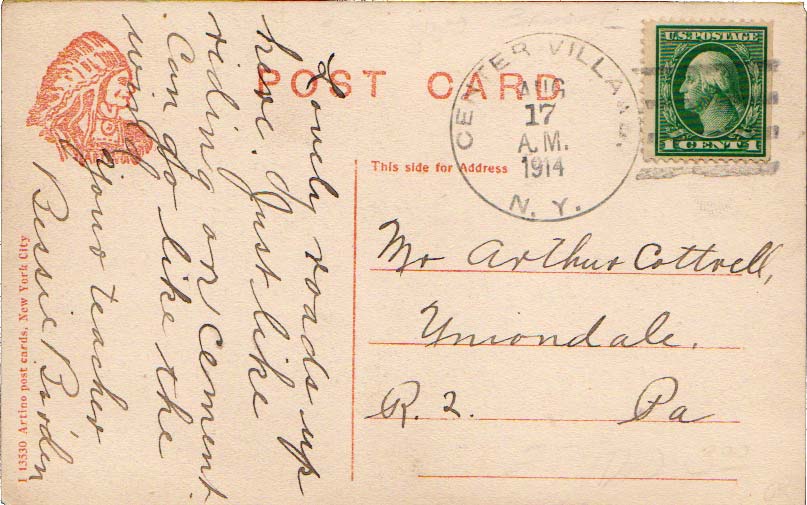 POST CARD
This side for Address
CENTER VILLAGE
AUG
17
A.M.
1914
N. Y.
U.S. POSTAGE
1 CENT 1
Mr Arthur Cottrell,
Uniondale.
R. 2. Pa
Lovely roads up
here. Just like
riding on cement.
Can go like the
wind
your teacher
Bessie Borden
I 13530 Artino post cards, New York City